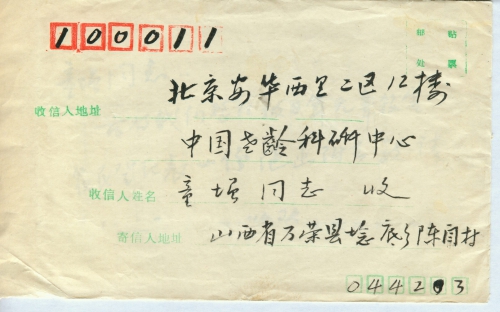 100011
贴票
邮处
收信人地址 北京安华西里二区12楼
中国老龄科研中心
收信人姓名 童 同志 收
寄信人地址 山西省万荣县埝底乡陈闫村
0442 3